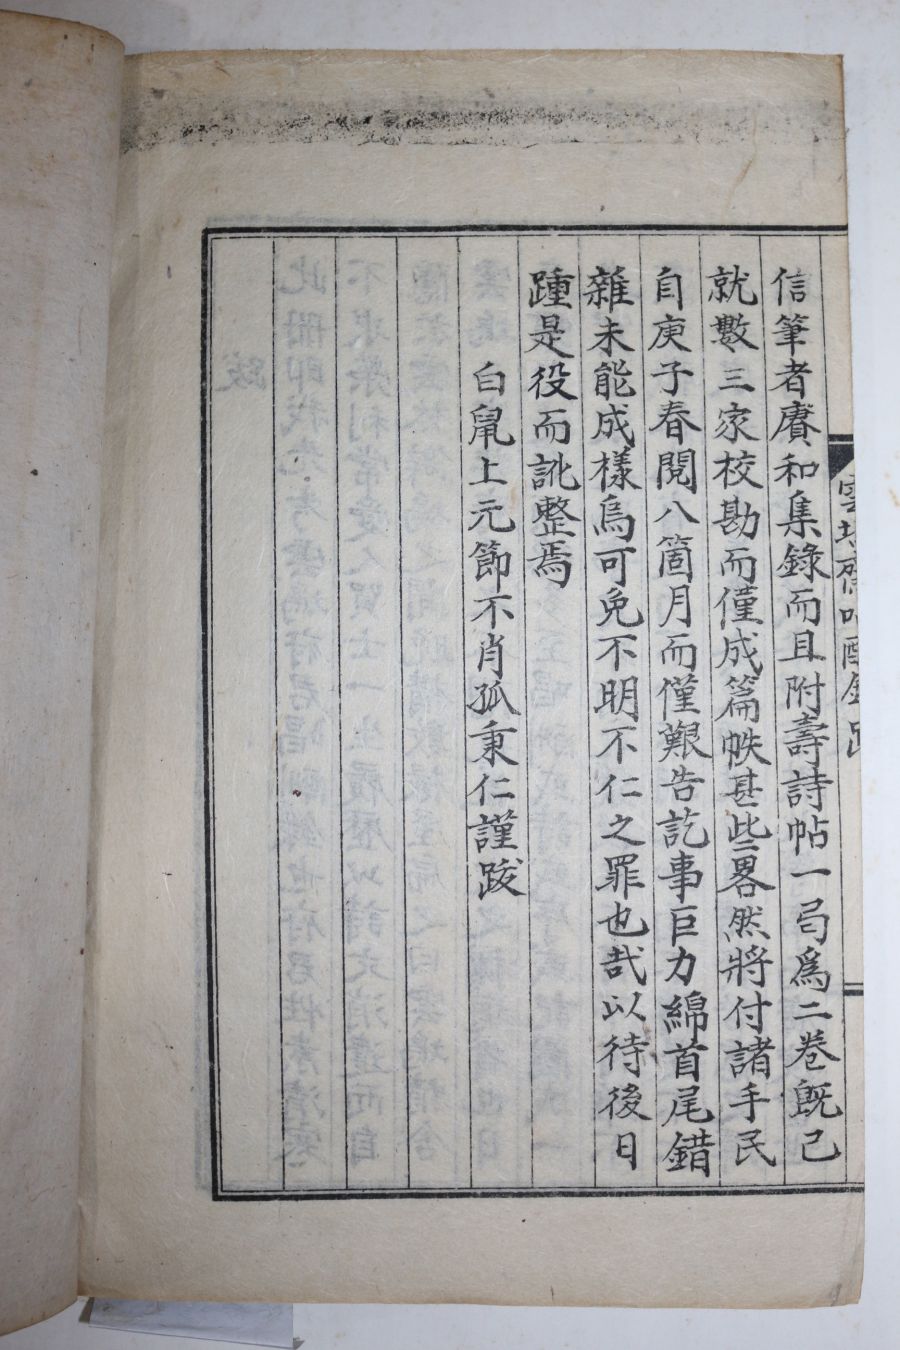 信筆者賡和集錄而且附壽詩帖一局爲二卷旣已
就數三家校勘而僅成篇帙甚些畧然將付諸手民
自庚子春閱八箇月而僅艱告訖事巨力綿首尾錯
雜未能成樣烏可免不明不仁之罪也哉以待後日
踵是役而訛整焉
白鼠上元節不肖孤秉仁謹跋